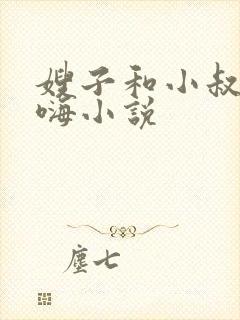 嫂子和小叔
嗨小説
塵七